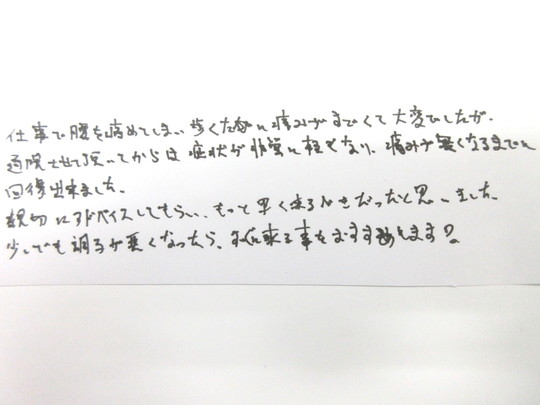 仕事で腰を痛めてしまい歩くたびに痛みがすごくて大変でしたが、
通院させて頂いてからは症状が非常に軽くなり、痛みが無くなるまでに
回復出来ました。
親切にアドバイスしてもらい、もっと早く来るべきだったと思いました。
少しでも調子が悪くなったら、すぐに来る事をおすすめします。